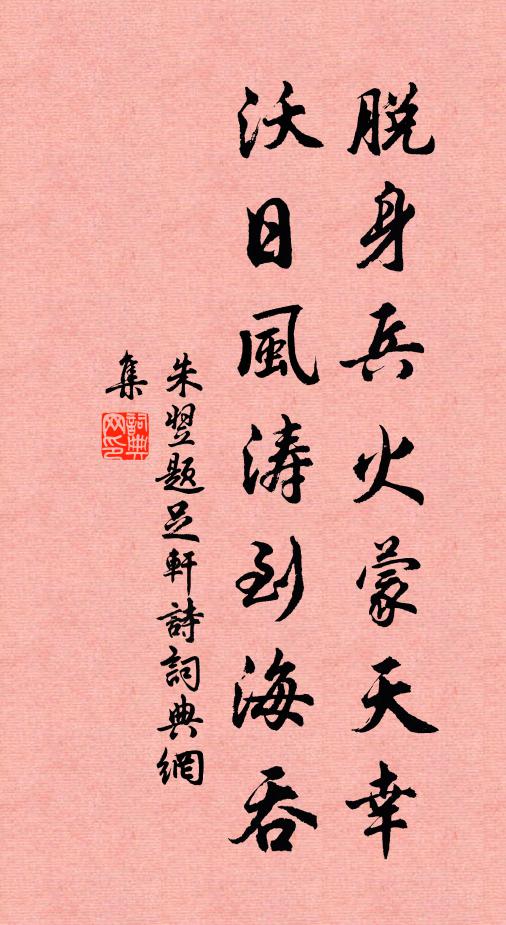 脱身兵火蒙天幸
沃日風涛到海吞
朱翌題足軒詩詞典網
集
詞典
网印